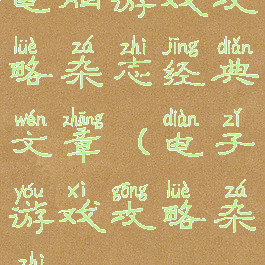 电脑游戏攻
lüè zá zhì jīng diǎn
略杂志经典
wén zhāng diàn zǐ
文章（电子
yóu xì gōng lüè zá
游戏攻略杂
zhì